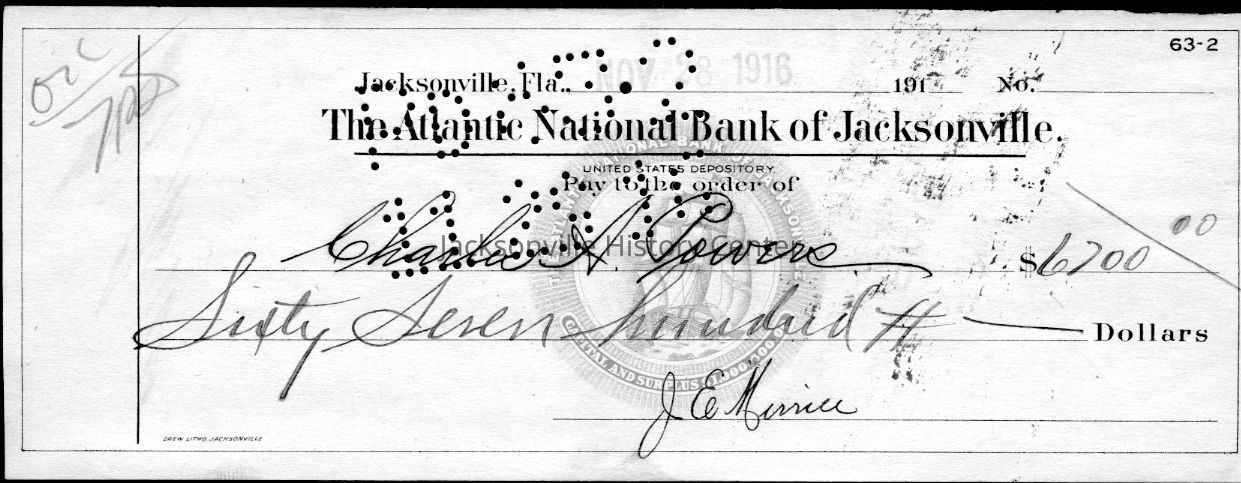 63-2
OK
Jacksonville, Fla., NOV 28 1916 191 No.
The Atlantic National Bank of Jacksonville.
UNITED STATES DEPOSITORY.
Pay to the order of
Charles A. Powers $6700 00
Jacksonville History Center
Sixty Seven hundred Dollars
CAPITAL AND SURPLUS
J E Merrill
DREW LITHO. JACKSONVILLE